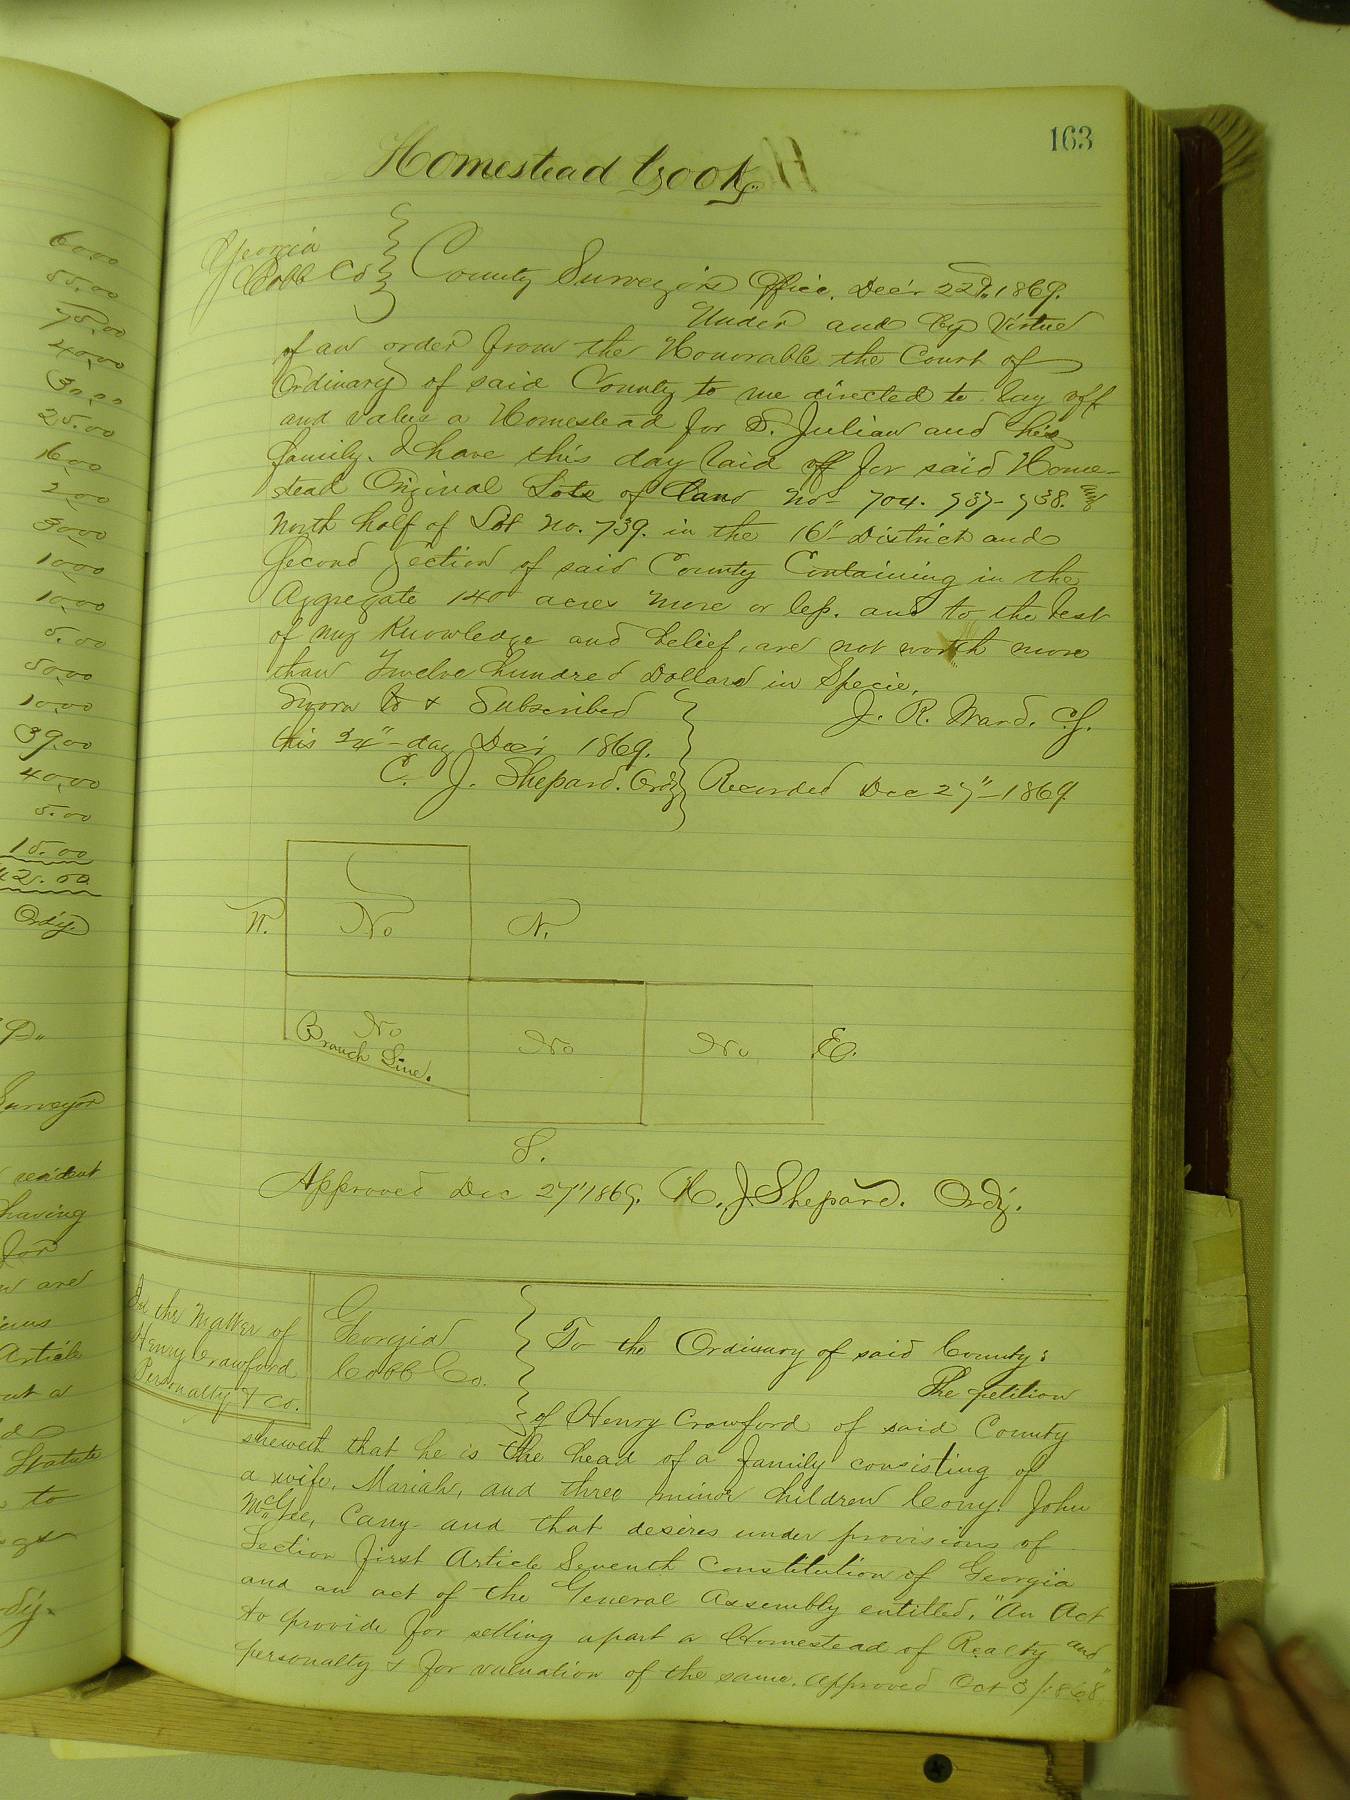 163
Homestead Book.
Georgia
Cobb Co
County Surveyors Office, Dec'r 22d, 1869.
Under and by Virtue
of an order from the Honorable the Court of
Ordinary of said County to me directed to lay off
and value a Homestead for S. Julian and his
family. I have this day laid off for said Home-
stead Original Lots of land No- 704. 737- 738. and
North half of Lot No. 739. in the 16"- District and
Second Section of said County Containing in the
Aggregate 140 acres more or less. and to the best
of my Knowledge and belief, are not worth more
than Twelve hundred Dollars in Specie,
Sworn to & Subscribed
J. R. Ward. C.S.
this 24"- day Dec'r 1869.
C. J. Shepard. Ord'y
Recorded Dec 27"-1869
W.
No
N.
No
Branch Line.
No
No
E.
S.
Approved Dec 27" 1869. C. J. Shepard. Ord'y.
In the Matter of
Henry Crawford
Personalty & Co.
Georgia
Cobb Co.
To the Ordinary of said County:
The petition
of Henry Crawford of said County
sheweth that he is the head of a family consisting of
a wife, Mariah, and three minor children Cony. John
McGee, Cany and that desires under provisions of
Section first Article Seventh Constitution of Georgia
and an act of the General Assembly entitled, "An Act
to provide for setting apart a Homestead of Realty and
personalty & for valuation of the same. Approved Oct 3/1868"
60.00
55.00
75.00
40.00
30.00
25.00
16.00
2.00
30.00
10.00
10.00
5.00
50.00
10.00
39.00
40.00
5.00
15.00
42.00
Ord'y
Surveyor
resident
having
for
are
Article
out a
Statute
to